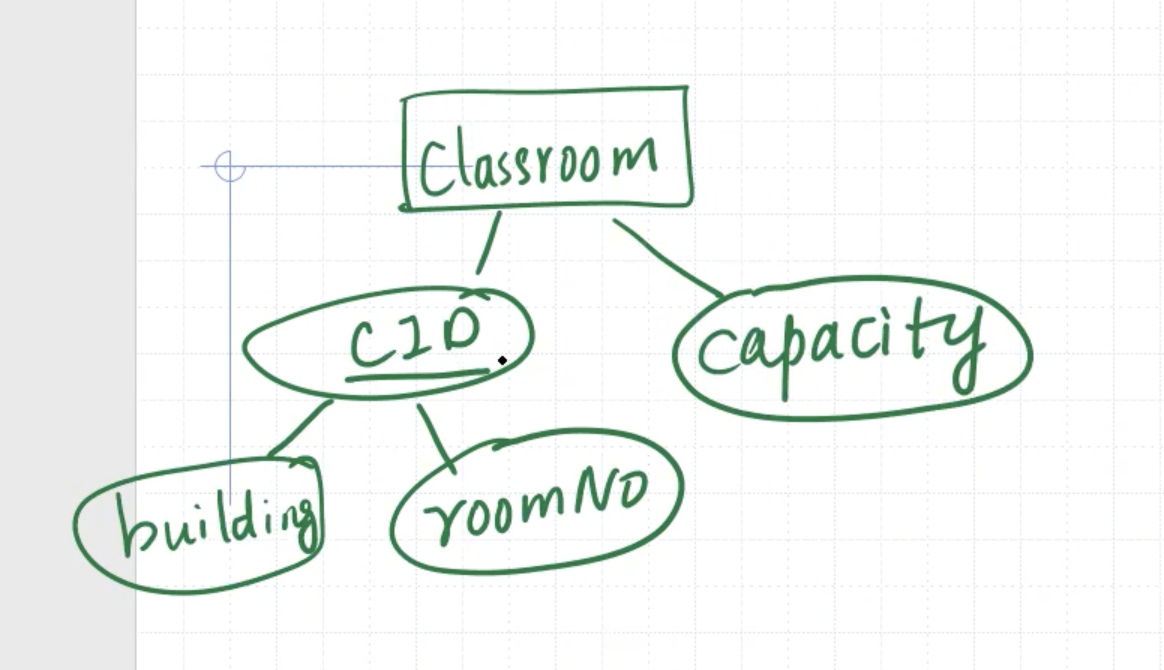 Classroom
CID
capacity
building
roomNo